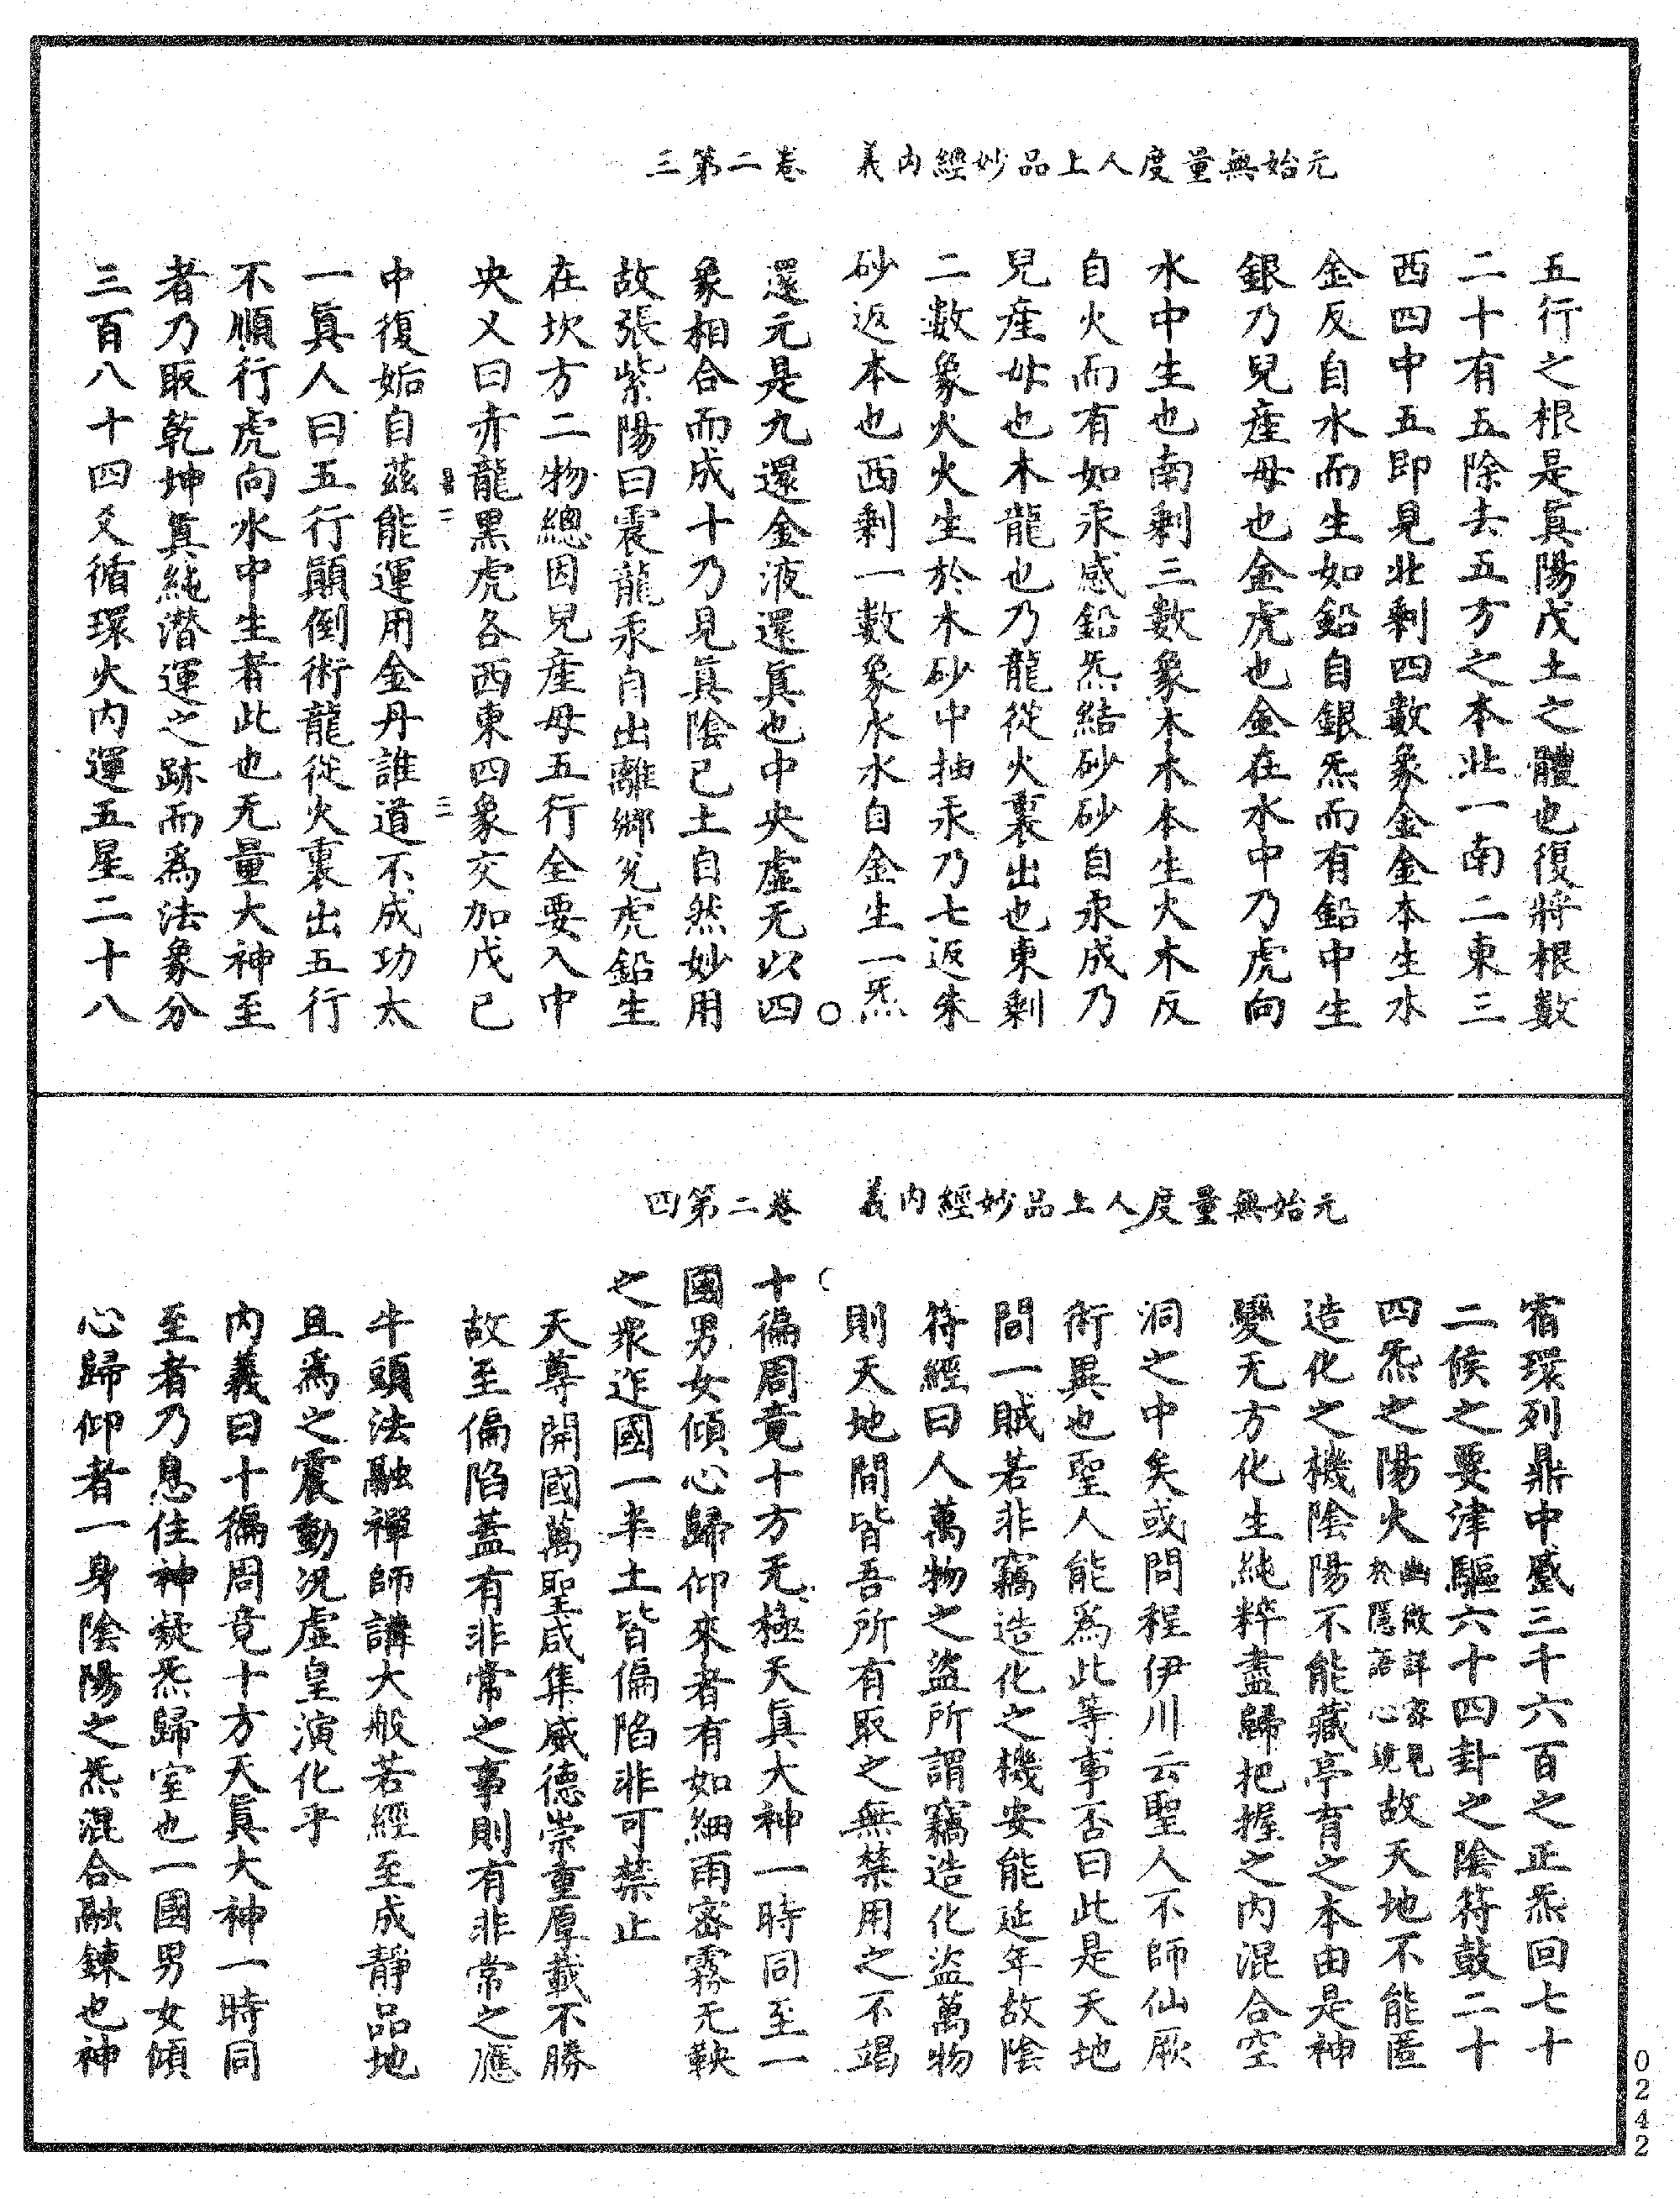 元始無量度人上品妙經內義　卷二第三
五行之根是眞陽戊土之體也復將根數
二十有五除去五方之本北一南二東三
西四中五即見北剩四數象金金本生水
金反自水而生如鉛自銀炁而有鉛中生
銀乃兒產母也金虎也金在水中乃虎向
水中生也南剩三數象木木本生火木反
自火而有如汞感鉛炁結砂砂自汞成乃
兒產母也木龍也乃龍從火裏出也東剩
二數象火火生於木砂中抽汞乃七返朱
砂返本也西剩一數象水水自金生一炁
還元是九還金液還眞也中央虛无以四
象相合而成十乃見眞陰己土自然妙用
故張紫陽曰震龍汞自出離鄉兌虎鉛生
在坎方二物總因兒產母五行全要入中
央又曰赤龍黑虎各西東四象交加戊己
二　三
中復姤自茲能運用金丹誰道不成功太
一眞人曰五行顚倒術龍從火裏出五行
不順行虎向水中生者此也无量大神至
者乃取乾坤眞純潛運之跡而爲法象分
三百八十四爻循環火內運五星二十八
元始無量度人上品妙經內義　卷二第四
宿環列鼎中盛三千六百之正炁回七十
二候之要津驅六十四卦之陰符鼓二十
四炁之陽火幽微詳審見於隱語心境故天地不能匿
造化之機陰陽不能藏亭育之本由是神
變无方化生純粹盡歸把握之內混合空
洞之中矣或問程伊川云聖人不師仙厥
術異也聖人能爲此等事否曰此是天地
間一賊若非竊造化之機安能延年故陰
符經曰人萬物之盜所謂竊造化盜萬物
則天地間皆吾所有取之無禁用之不竭
十徧周竟十方无極天眞大神一時同至一
國男女傾心歸仰來者有如細雨密霧无鞅
之衆迮國一半土皆偏陷非可禁止
天尊開國萬聖咸集威德崇重厚載不勝
故至偏陷蓋有非常之事則有非常之應
牛頭法融禪師講大般若經至成靜品地
且爲之震動况虛皇演化乎
內義曰十徧周竟十方天眞大神一時同
至者乃息住神凝炁歸室也一國男女傾
心歸仰者一身陰陽之炁混合融鍊也神
0242